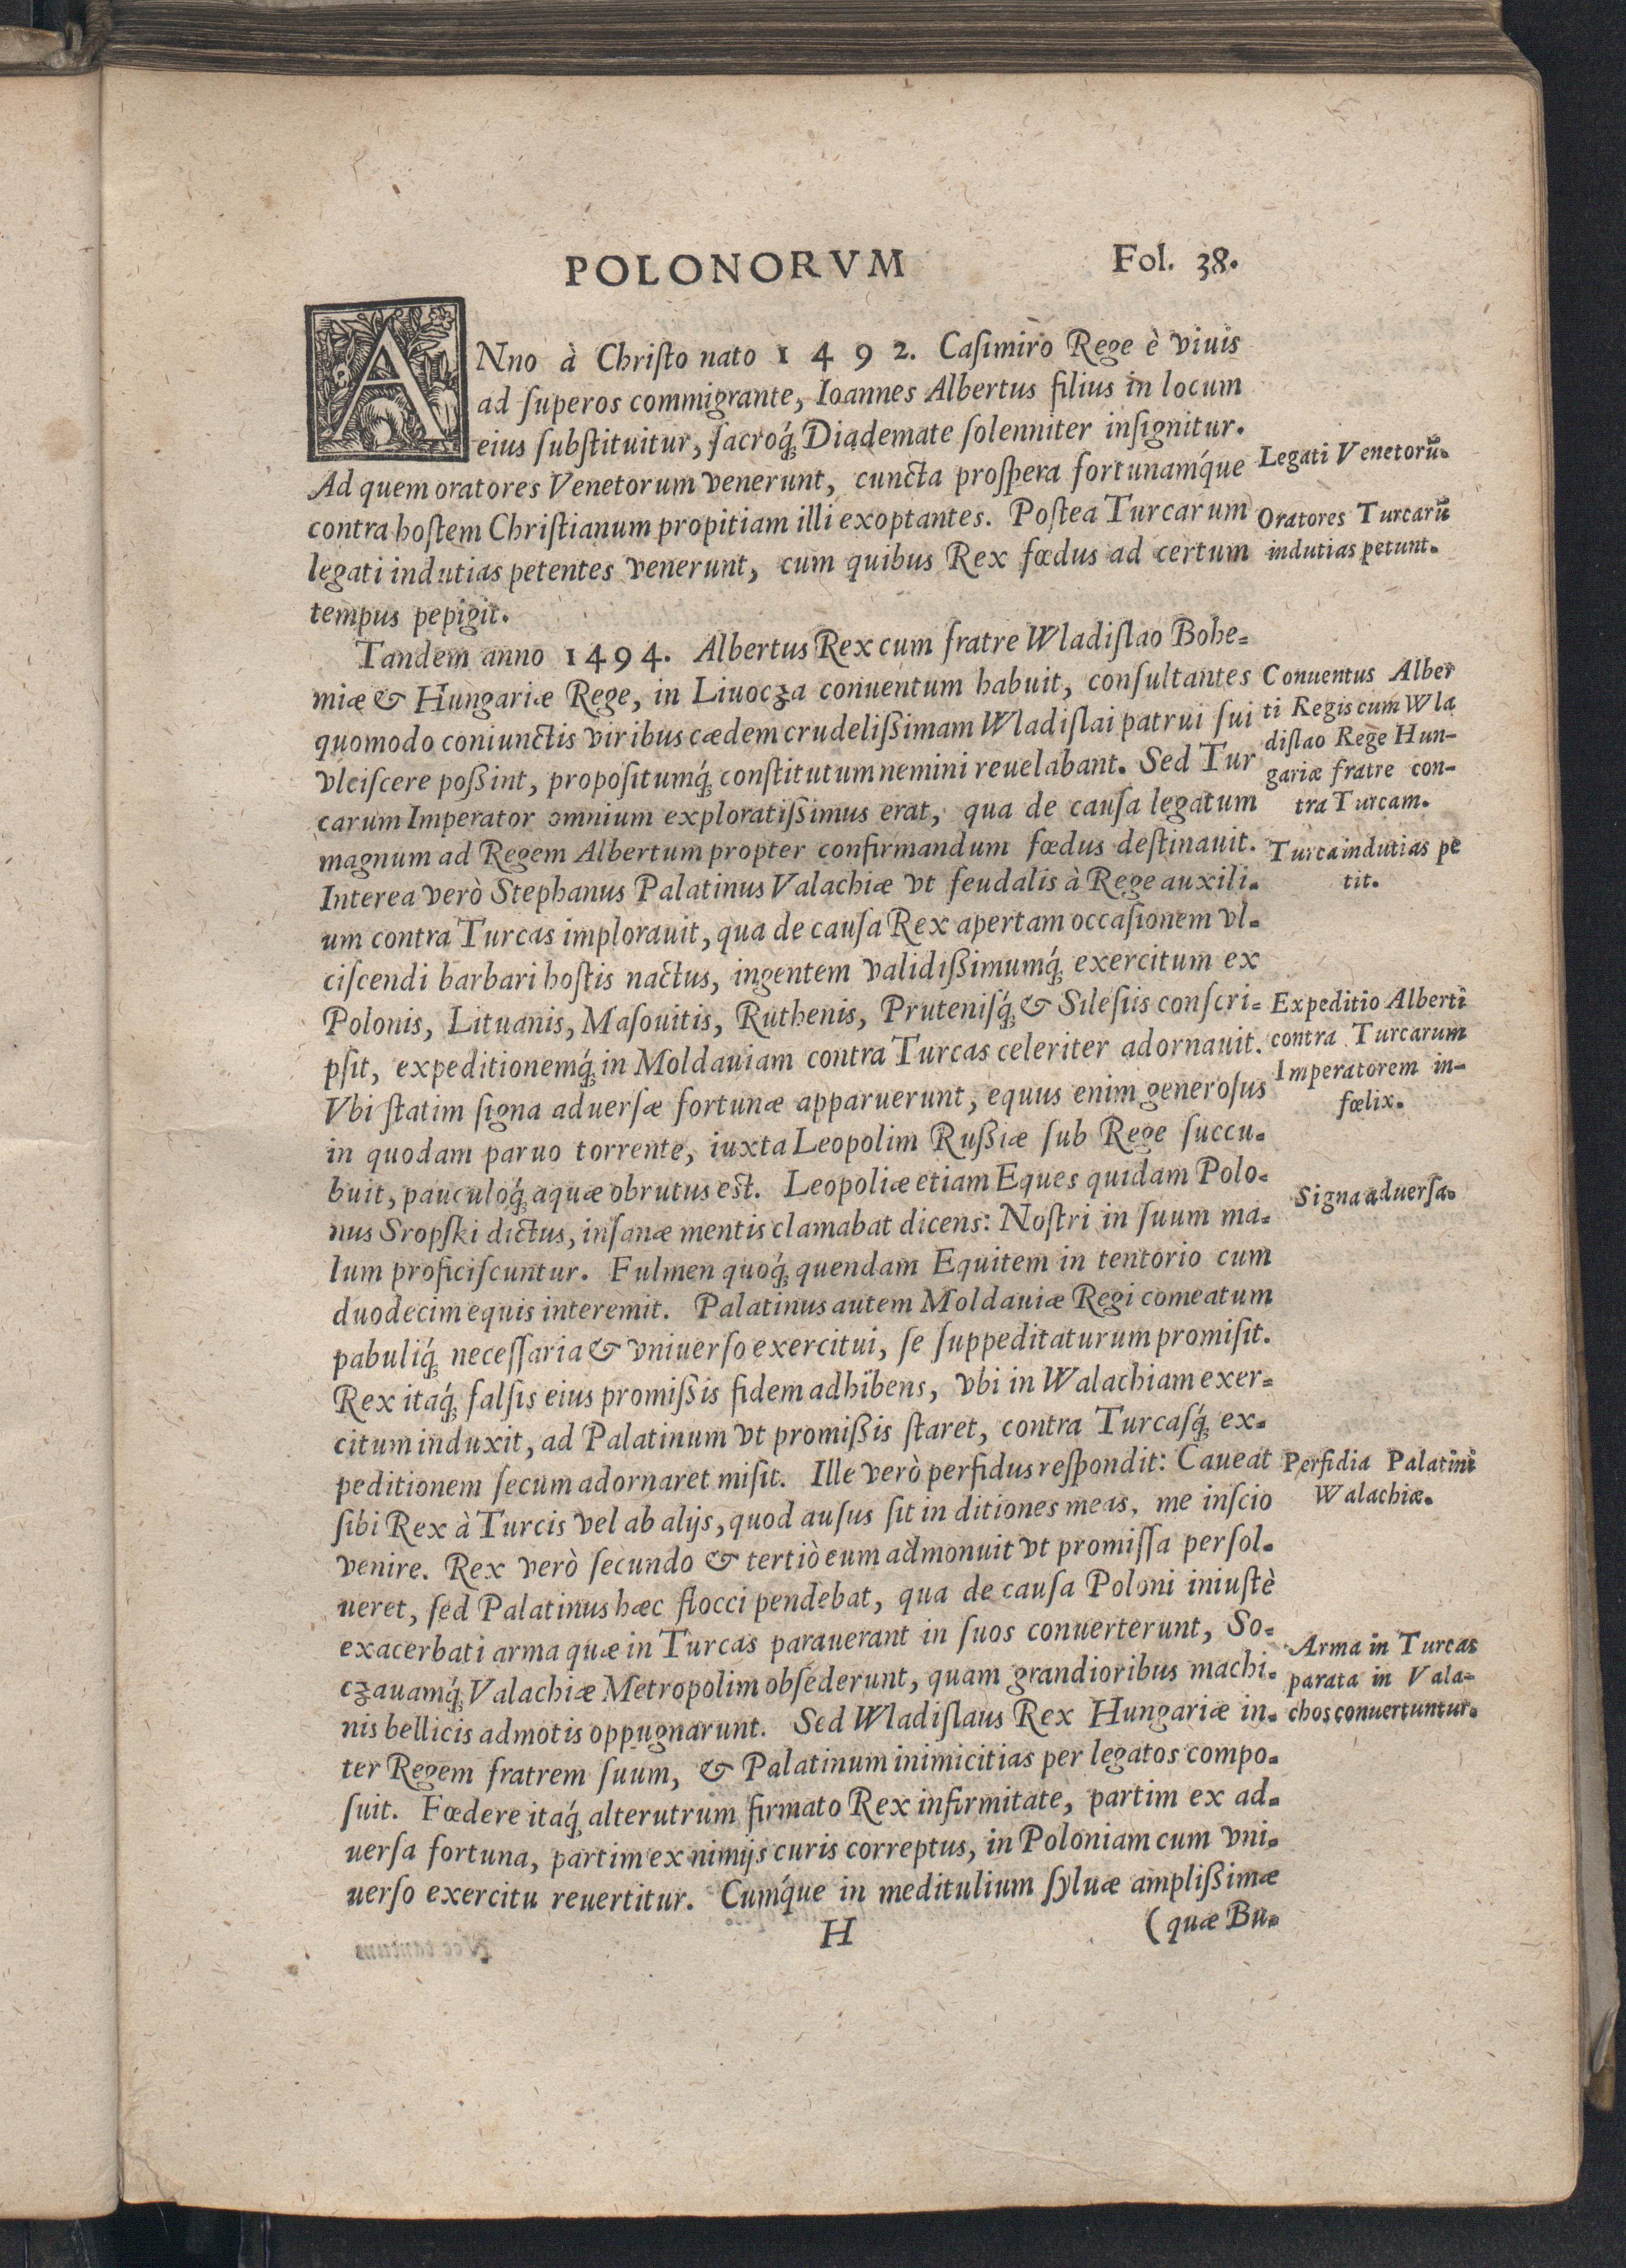 POLONORVM Fol. 38.
ANno à Chriſto nato 1492. Caſimiro Rege è viuis
ad ſuperos commigrante, Ioannes Albertus filius in locum
eius ſubſtituitur, ſacroq́; Diademate ſolenniter inſignitur.
Ad quem oratores Venetorum venerunt, cuncta proſpera fortunamq́ue
contra hoſtem Chriſtianum propitiam illi exoptantes. Poſtea Turcarum
legati indutias petentes venerunt, cum quibus Rex fœdus ad certum
tempus pepigit.
Tandem anno 1494. Albertus Rex cum fratre Wladiſlao Bohe-
miæ & Hungariæ Rege, in Liuocza conuentum habuit, conſultantes
quomodo coniunctis viribus cædem crudelißimam Wladiſlai patrui ſui
vleiſcere poßint, propoſitumq́; conſtitutum nemini reuelabant. Sed Tur
carum Imperator omnium exploratißimus erat, qua de cauſa legatum
magnum ad Regem Albertum propter confirmandum fœdus deſtinauit.
Interea verò Stephanus Palatinus Valachiæ vt feudalis à Rege auxili-
um contra Turcas implorauit, qua de cauſa Rex apertam occaſionem vl-
ciſcendi barbari hoſtis nactus, ingentem validißimumq́; exercitum ex
Polonis, Lituanis, Maſouitis, Ruthenis, Pruteniſq́; & Sileſiis conſcri-
pſit, expeditionemq́; in Moldauiam contra Turcas celeriter adornauit.
Vbi ſtatim ſigna aduerſæ fortunæ apparuerunt, equus enim generoſus
in quodam paruo torrente, iuxta Leopolim Rußiæ ſub Rege ſuccu-
buit, pauculoq́; aquæ obrutus est. Leopoliæ etiam Eques quidam Polo-
nus Sropſki dictus, inſanæ mentis clamabat dicens: Noſtri in ſuum ma-
lum proficiſcuntur. Fulmen quoq́; quendam Equitem in tentorio cum
duodecim equis interemit. Palatinus autem Moldauiæ Regi comeatum
pabuliq́; neceſſaria & vniuerſo exercitui, ſe ſuppeditaturum promiſit.
Rex itaq́; falſis eius promißis fidem adhibens, vbi in Walachiam exer-
citum induxit, ad Palatinum vt promißis ſtaret, contra Turcaſq́; ex-
peditionem ſecum adornaret miſit. Ille verò perfidus reſpondit: Caueat
ſibi Rex à Turcis vel ab alijs, quod auſus ſit in ditiones meas, me inſcio
venire. Rex verò ſecundo & tertiò eum admonuit vt promiſſa perſol-
ueret, ſed Palatinus hæc flocci pendebat, qua de cauſa Poloni iniuſtè
exacerbati arma quæ in Turcas parauerant in ſuos conuerterunt, So-
czauamq́; Valachiæ Metropolim obſederunt, quam grandioribus machi-
nis bellicis admotis oppugnarunt. Sed Wladiſlaus Rex Hungariæ in-
ter Regem fratrem ſuum, & Palatinum inimicitias per legatos compo-
ſuit. Fœdere itaq́; alterutrum firmato Rex infirmitate, partim ex ad-
uerſa fortuna, partim ex nimijs curis correptus, in Poloniam cum vni-
uerſo exercitu reuertitur. Cumq́ue in meditulium ſyluæ amplißimæ
H (quæ Bu-
Legati Venetorũ.
Oratores Turcarũ
indutias petunt.
Conuentus Alber
ti Regis cum Wla
diſlao Rege Hun-
gariæ fratre con-
tra Turcam.
Turca indutias pe
tit.
Expeditio Alberti
contra Turcarum
Imperatorem in-
fœlix.
Signa aduerſa.
Perfidia Palatini
Walachiæ.
Arma in Turcas
parata in Vala-
chos conuertuntur.